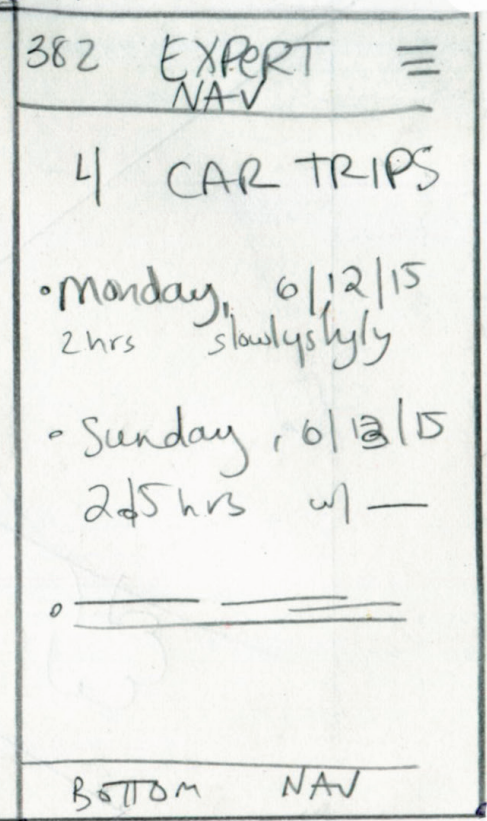 382 EXPERT
NAV
4 CAR TRIPS
• Monday, 6/12/15
2 hrs slowlyslyly
• Sunday, 6/13/15
2.5 hrs w/ —
BOTTOM NAV